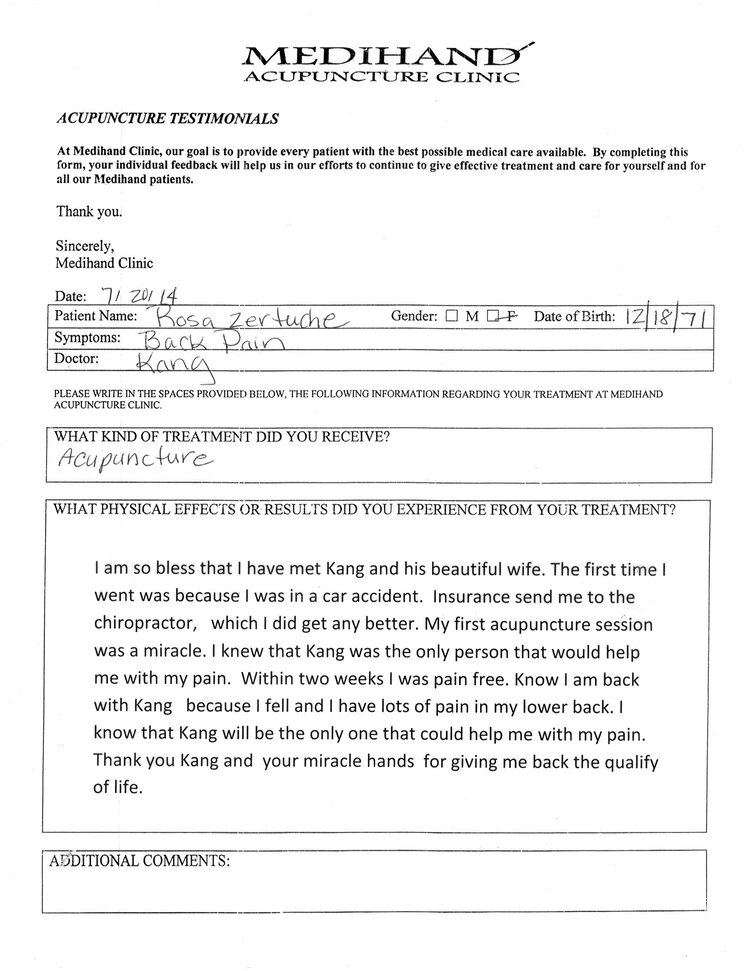 MEDIHAND
ACUPUNCTURE CLINIC
ACUPUNCTURE TESTIMONIALS
At Medihand Clinic, our goal is to provide every patient with the best possible medical care available. By completing this
form, your individual feedback will help us in our efforts to continue to give effective treatment and care for yourself and for
all our Medihand patients.
Thank you.
Sincerely,
Medihand Clinic
Date: 7/20/14
Patient Name: Rosa Zertuche Gender: ☐ M ☐ F Date of Birth: 12/18/71
Symptoms: Back Pain
Doctor: Kang
PLEASE WRITE IN THE SPACES PROVIDED BELOW, THE FOLLOWING INFORMATION REGARDING YOUR TREATMENT AT MEDIHAND
ACUPUNCTURE CLINIC.
WHAT KIND OF TREATMENT DID YOU RECEIVE?
Acupuncture
WHAT PHYSICAL EFFECTS OR RESULTS DID YOU EXPERIENCE FROM YOUR TREATMENT?
I am so bless that I have met Kang and his beautiful wife. The first time I
went was because I was in a car accident. Insurance send me to the
chiropractor, which I did get any better. My first acupuncture session
was a miracle. I knew that Kang was the only person that would help
me with my pain. Within two weeks I was pain free. Know I am back
with Kang because I fell and I have lots of pain in my lower back. I
know that Kang will be the only one that could help me with my pain.
Thank you Kang and your miracle hands for giving me back the qualify
of life.
ADDITIONAL COMMENTS: